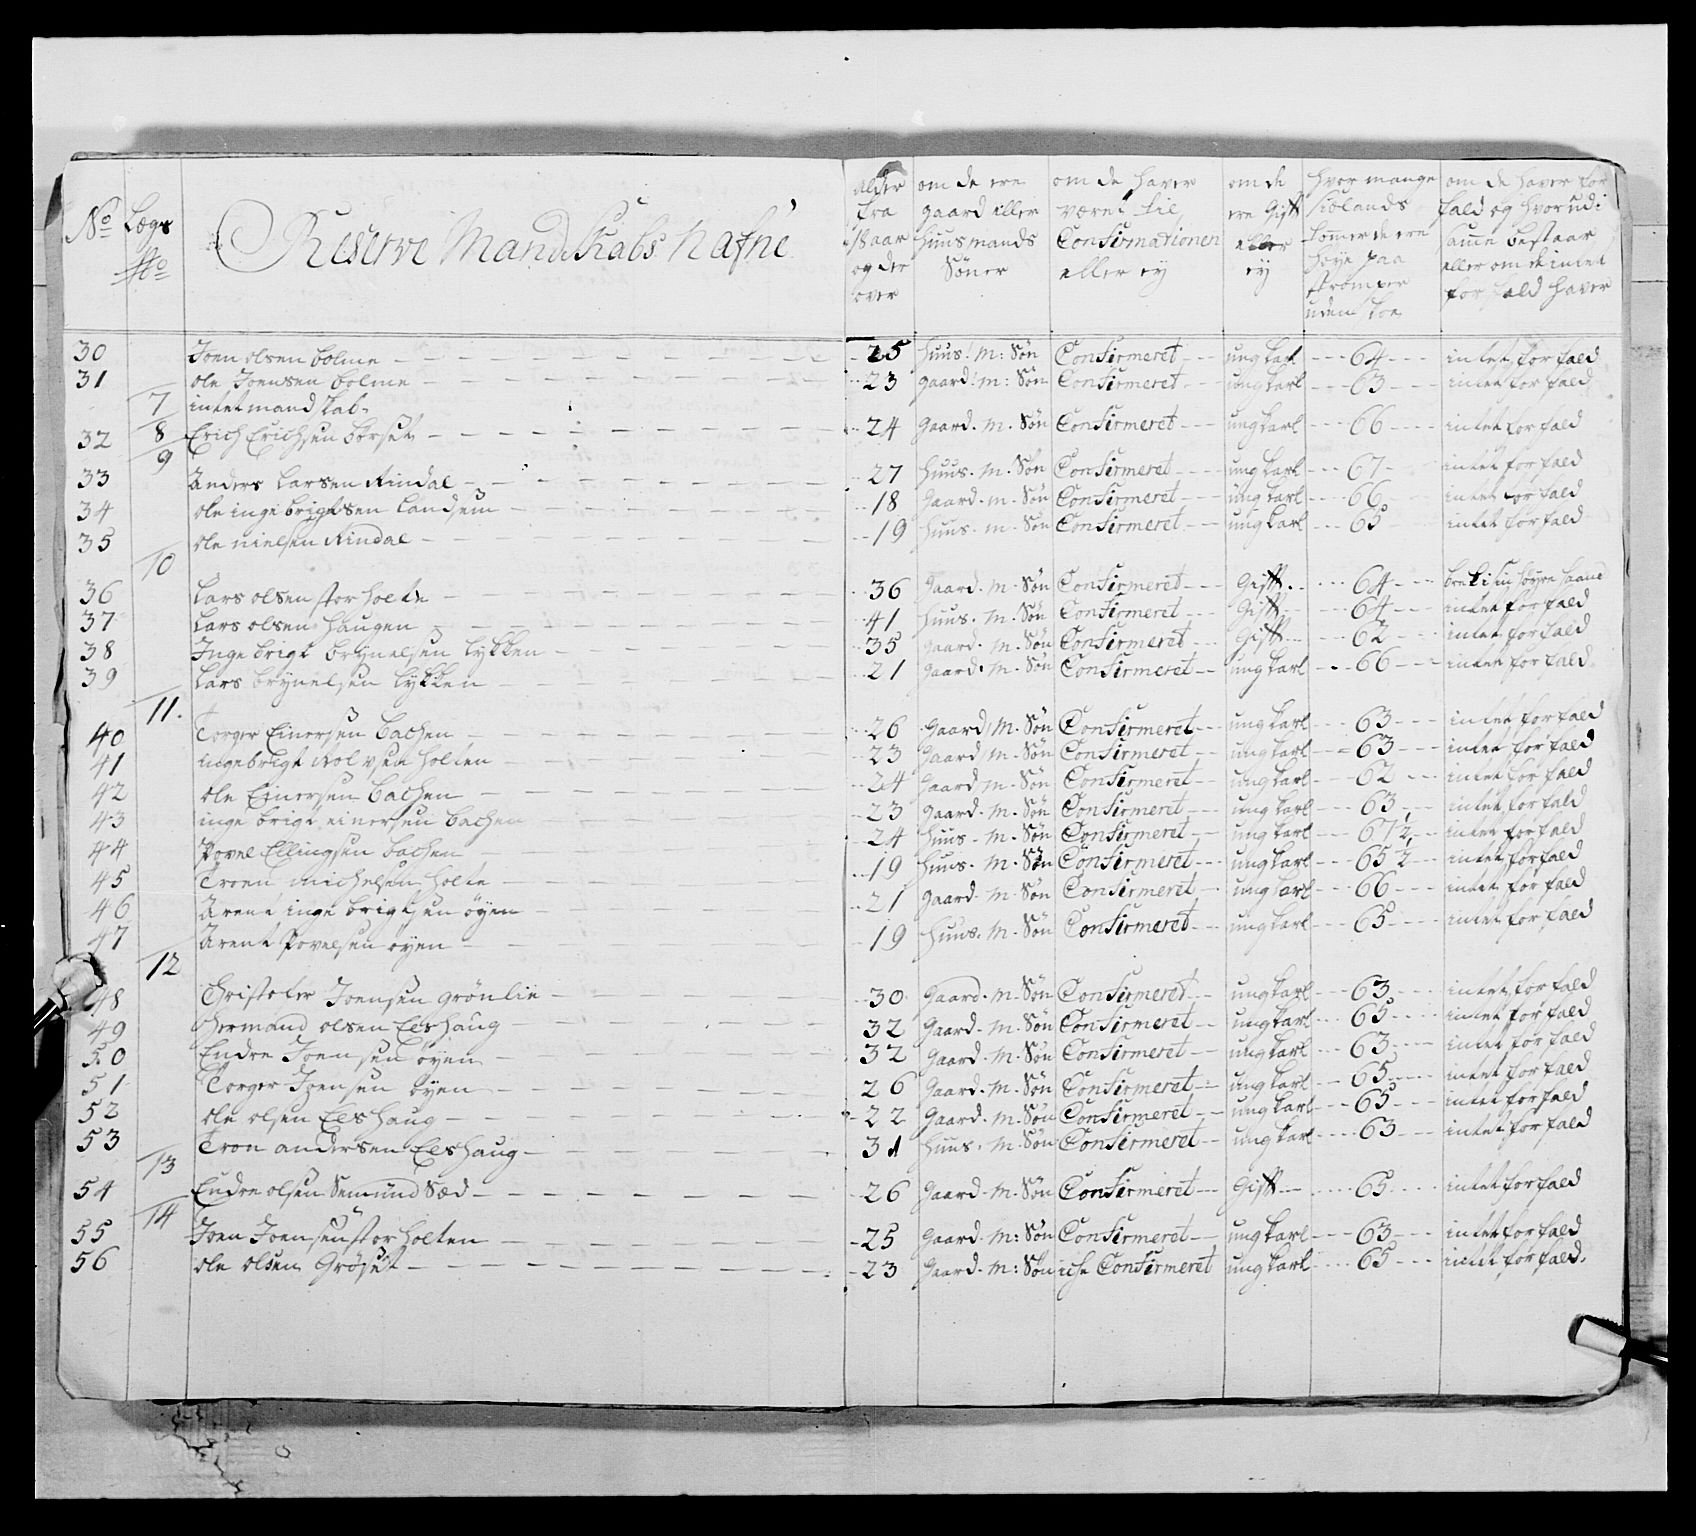 No Lægs No Reserve Mandskabs Nafne
alder fra 18 aar og der over
om de ere gaard eller huusmands Søner
om de haver været til Confirmationen eller ey
om de ere Gift eller ey
hvor mange Siølands tommer de ere høye paa strømper uden skoe
om de haver forfald og hvor udi same bestaar eller om de intet forfald haver
30 Joen olsen bolme 25 huus: M: Søn Confirmeret ungkarl 64 intet forfald
31 ole Joensen bolme 23 gaard: M: Søn Confirmeret ungkarl 63 intet forfald
7 intet mandskab
32 8 Erich Erichsen børset 24 gaard. M. Søn Confirmeret ungkarl 66 intet forfald
9
33 Anders Larsen Rindal 27 huus. M. Søn Confirmeret ungkarl 67 intet forfald
34 ole ingebrigtsen Landsem 18 gaard. M. Søn Confirmeret ungkarl 66 intet forfald
35 ole nielsen Rindal 19 huus. M. Søn Confirmeret ungkarl 65 intet forfald
10
36 Lars olsen storholte 36 gaard. M. Søn Confirmeret Gift 64 brek i sin høyre haand
37 Lars olsen haugen 41 huus. M. Søn Confirmeret Gift 64 intet forfald
38 Ingebrigt brynelsen lykken 35 gaard. M. Søn Confirmeret Gift 62 intet forfald
39 Lars brynelsen lykken 21 gaard. M. Søn Confirmeret ungkarl 66 intet forfald
11.
40 Torger Einersen bachen 26 gaard M. Søn Confirmeret ungkarl 63 intet forfald
41 ingebrigt Rolvsen holten 23 gaard M. Søn Confirmeret ungkarl 63 intet forfald
42 ole Einersen bachen 24 gaard M. Søn Confirmeret ungkarl 62 intet forfald
43 ingebrigt einersen bachen 23 gaard. M. Søn Confirmeret ungkarl 63 intet forfald
44 Povel Ellingsen bachen 24 huus. M. Søn Confirmeret ungkarl 67½ intet forfald
45 Troen michelsen holte 19 huus. M. Søn Confirmeret ungkarl 65½ intet forfald
46 Arent ingebrigtsen øyen 21 gaard. M. Søn Confirmeret ungkarl 66 intet forfald
47 Arent Povelsen øyen 19 huus. M. Søn Confirmeret ungkarl 65 intet forfald
12
48 Christofer Joensen grønlie 30 gaard. M. Søn Confirmeret ungkarl 63 intet forfald
49 hermand olsen Eelshaug 32 gaard. M. Søn Confirmeret ungkarl 65 intet forfald
50 Endre Joensen øyen 32 gaard. M. Søn Confirmeret ungkarl 63 intet forfald
51 Torger Joensen øyen 26 gaard. M. Søn Confirmeret ungkarl 65 intet forfald
52 ole olsen Eelshaug 22 gaard. M. Søn Confirmeret ungkarl 65 intet forfald
53 Tron andersen Eelshaug 31 huus. M. Søn Confirmeret ungkarl 63 intet forfald
13
54 Endre olsen Semundsæd 26 gaard. M. Søn Confirmeret Gift 65 intet forfald
14
55 Joen Joensen storholten 25 gaard. M: Søn Confirmeret ungkarl 63 intet forfald
56 ole olsen Grøset 23 gaard. M: Søn iche Confirmeret ungkarl 65 intet forfald.